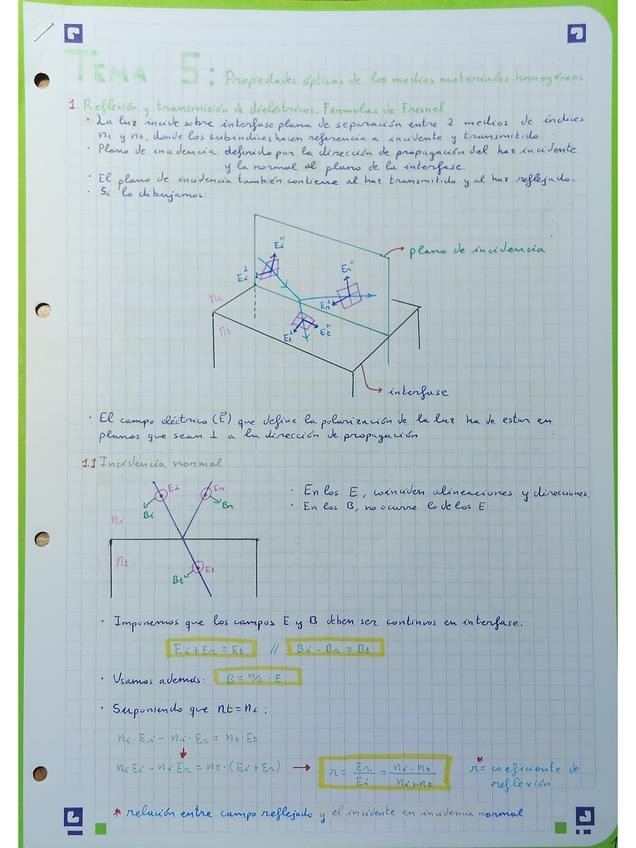 TEMA 5: Propiedades ópticas de los medios materiales homogéneos
1. Reflexión y transmisión de dieléctricos. Fórmulas de Fresnel
· La luz incide sobre interfase plana de separación entre 2 medios de índices
ni y nt, donde los subíndices hacen referencia a incidente y transmitido.
· Plano de incidencia: definido por la dirección de propagación del haz incidente
y la normal al plano de la interfase.
· El plano de incidencia también contiene al haz transmitido y al haz reflejado.
· Si lo dibujamos:
plano de incidencia
Ei"
Ei⊥
Er"
Er⊥
ni
nt
Et⊥
Et"
interfase
· El campo eléctrico (E⃗) que define la polarización de la luz ha de estar en
planos que sean ⊥ a la dirección de propagación
1.1 Incidencia normal
Ei
Er
Bi
Br
ni
nt
Et
Bt
· En los E, coinciden alineaciones y direcciones.
· En los B, no ocurre lo de los E
· Imponemos que los campos E y B deben ser continuos en interfase:
Ei+Er = Et // Bi - Br = Bt
· Usamos además: B = n/c · E
· Suponiendo que nt=ni:
ni·Ei - ni·Er = nt·Et
niEi - niEr = nt·(Ei+Er) → r = Er/Ei = ni-nt/ni+nt
r* = coeficiente de
reflexión
* relación entre campo reflejado y el incidente en incidencia normal